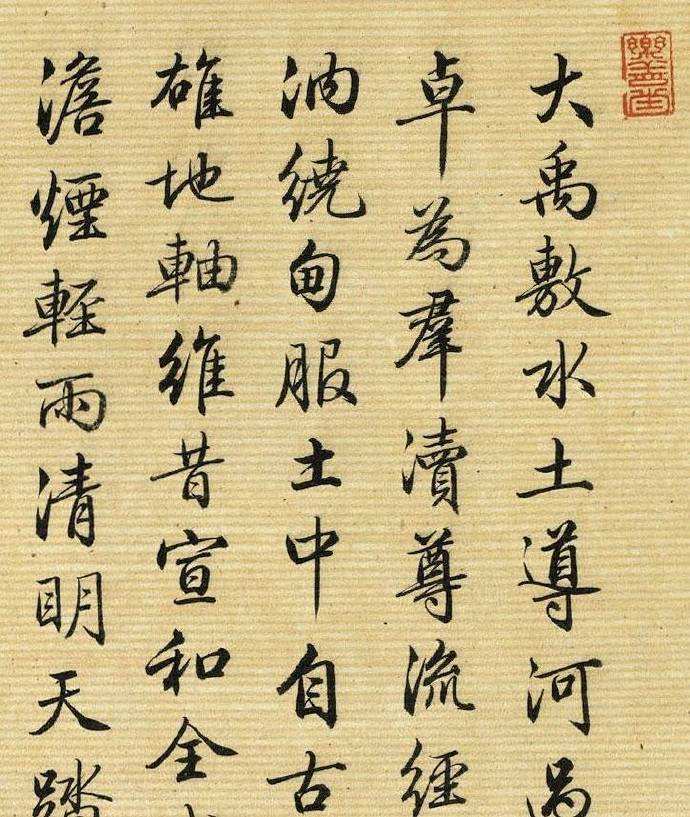 樂善堂
大禹敷水土導河
卓為羣瀆尊流經
汭繞甸服土中自古
雄地軸維昔宣和全
澹煙輕雨清明天踏